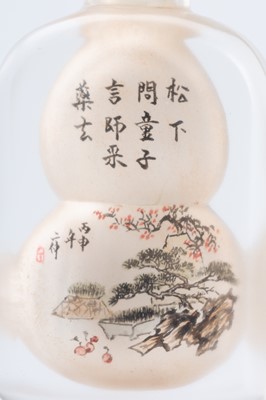 松下
問童子
言師采
藥去
丙申
年